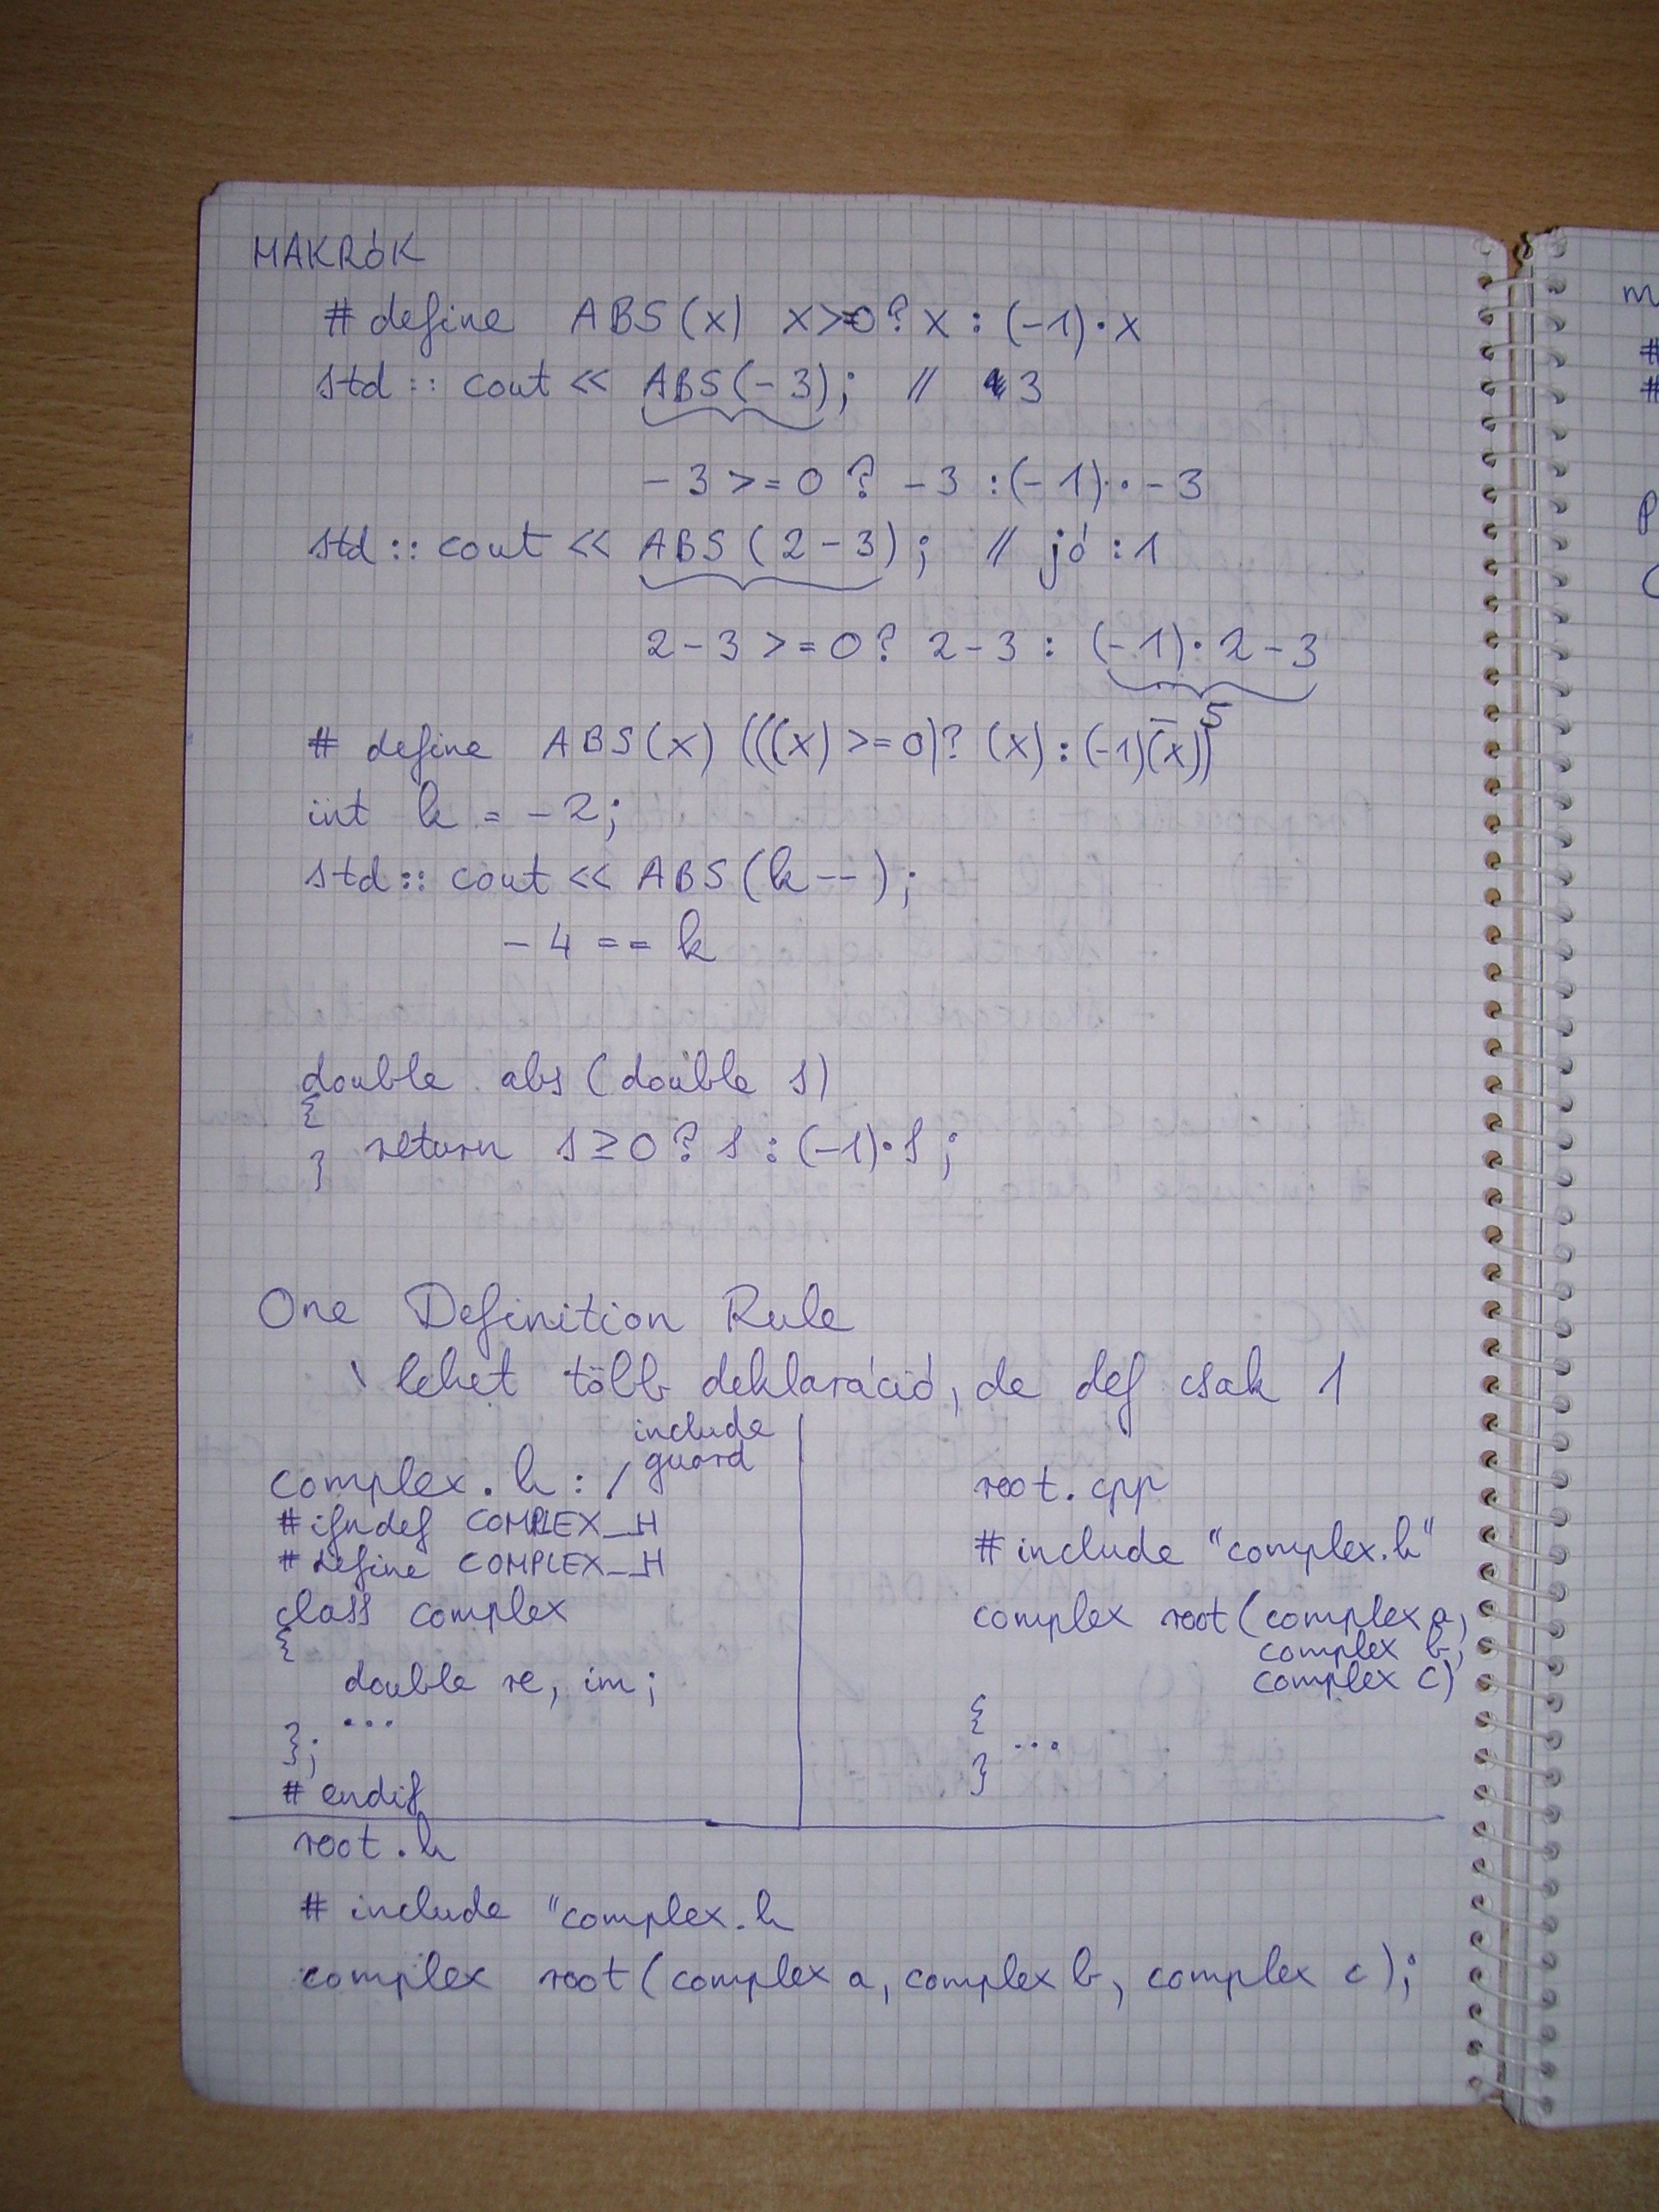 MAKRÓK
# define ABS(x) x>=0? x : (-1)·x
std :: cout << ABS(-3); // 3
-3 >= 0 ? -3 : (-1)·-3
std :: cout << ABS(2-3); // jó : 1
2-3 >= 0? 2-3 : (-1)·2-3
-5
# define ABS(x) (((x) >= 0)? (x) : (-1)(x))
int k = -2;
std :: cout << ABS(k--);
-4 == k
double abs(double s)
{
return s ≥ 0? s : (-1)·s;
}
One Definition Rule
\ lehet több deklaráció, de def csak 1
include
guard
complex.h: /
#ifndef COMPLEX__H
#define COMPLEX__H
class complex
{
double re, im;
...
};
# endif
root.cpp
#include "complex.h"
complex root(complex a,
complex b,
complex c)
{
...
}
root.h
# include "complex.h
complex root(complex a, complex b, complex c);
m
#
#
P
C